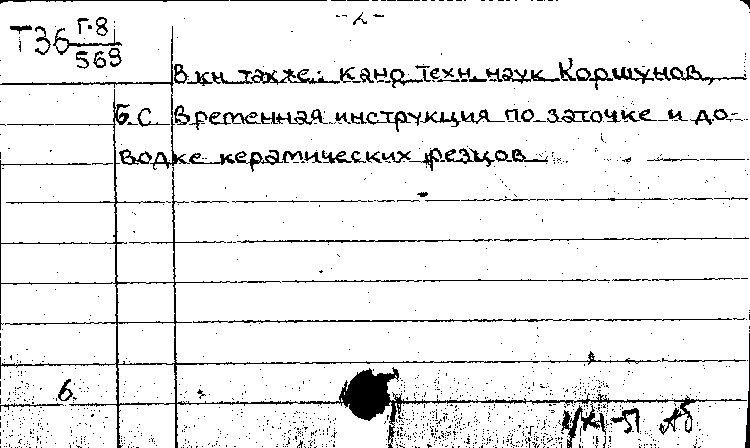 -2-
Т36 Г-8
569
В кн. также: канд. техн. наук Коршунов,
Б.С. Временная инструкция по заточке и до-
водке керамических резцов
6.